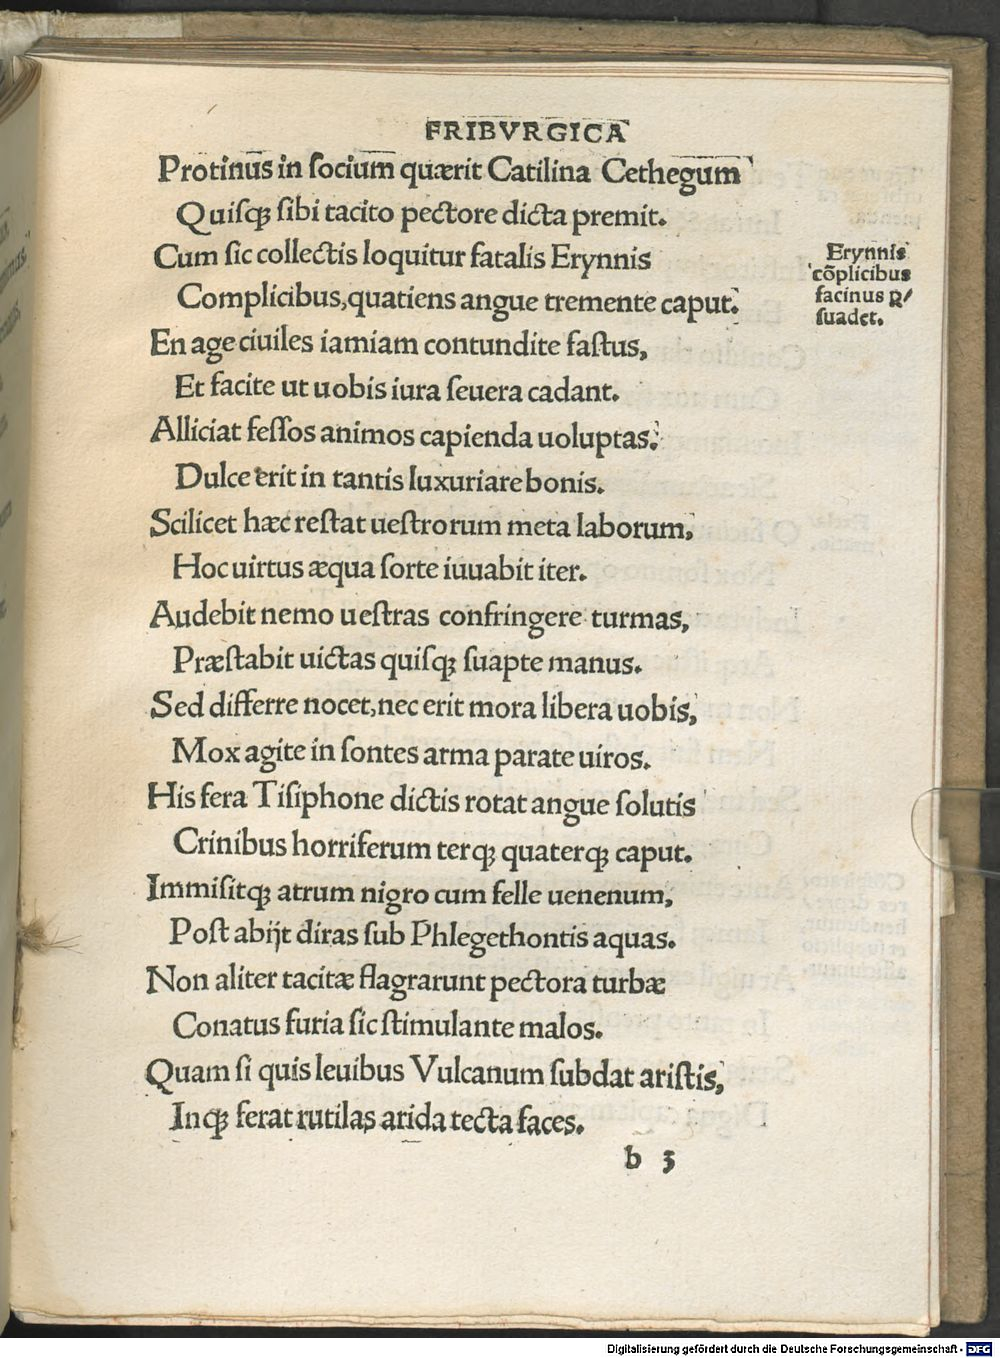 FRIBVRGICA
Protinus in socium quærit Catilina Cethegum
Quisqꝫ sibi tacito pectore dicta premit.
Cum sic collectis loquitur fatalis Erynnis
Complicibus, quatiens angue tremente caput.
En age ciuiles iamiam contundite fastus,
Et facite ut uobis iura seuera cadant.
Alliciat fessos animos capienda uoluptas.
Dulce erit in tantis luxuriare bonis.
Scilicet hæc restat uestrorum meta laborum,
Hoc uirtus æqua sorte iuuabit iter.
Audebit nemo uestras confringere turmas,
Præstabit uictas quisqꝫ suapte manus.
Sed differre nocet, nec erit mora libera uobis,
Mox agite in sontes arma parate uiros.
His fera Tisiphone dictis rotat angue solutis
Crinibus horriferum terqꝫ quaterqꝫ caput.
Immisitqꝫ atrum nigro cum felle uenenum,
Post abijt diras sub Phlegethontis aquas.
Non aliter tacitæ flagrarunt pectora turbæ
Conatus furia sic stimulante malos.
Quam si quis leuibus Vulcanum subdat aristis,
Inqꝫ ferat rutilas arida tecta faces.
b 3
Erynnis
cõplicibus
facinus ꝑ/
suadet.
Digitalisierung gefördert durch die Deutsche Forschungsgemeinschaft - DFG